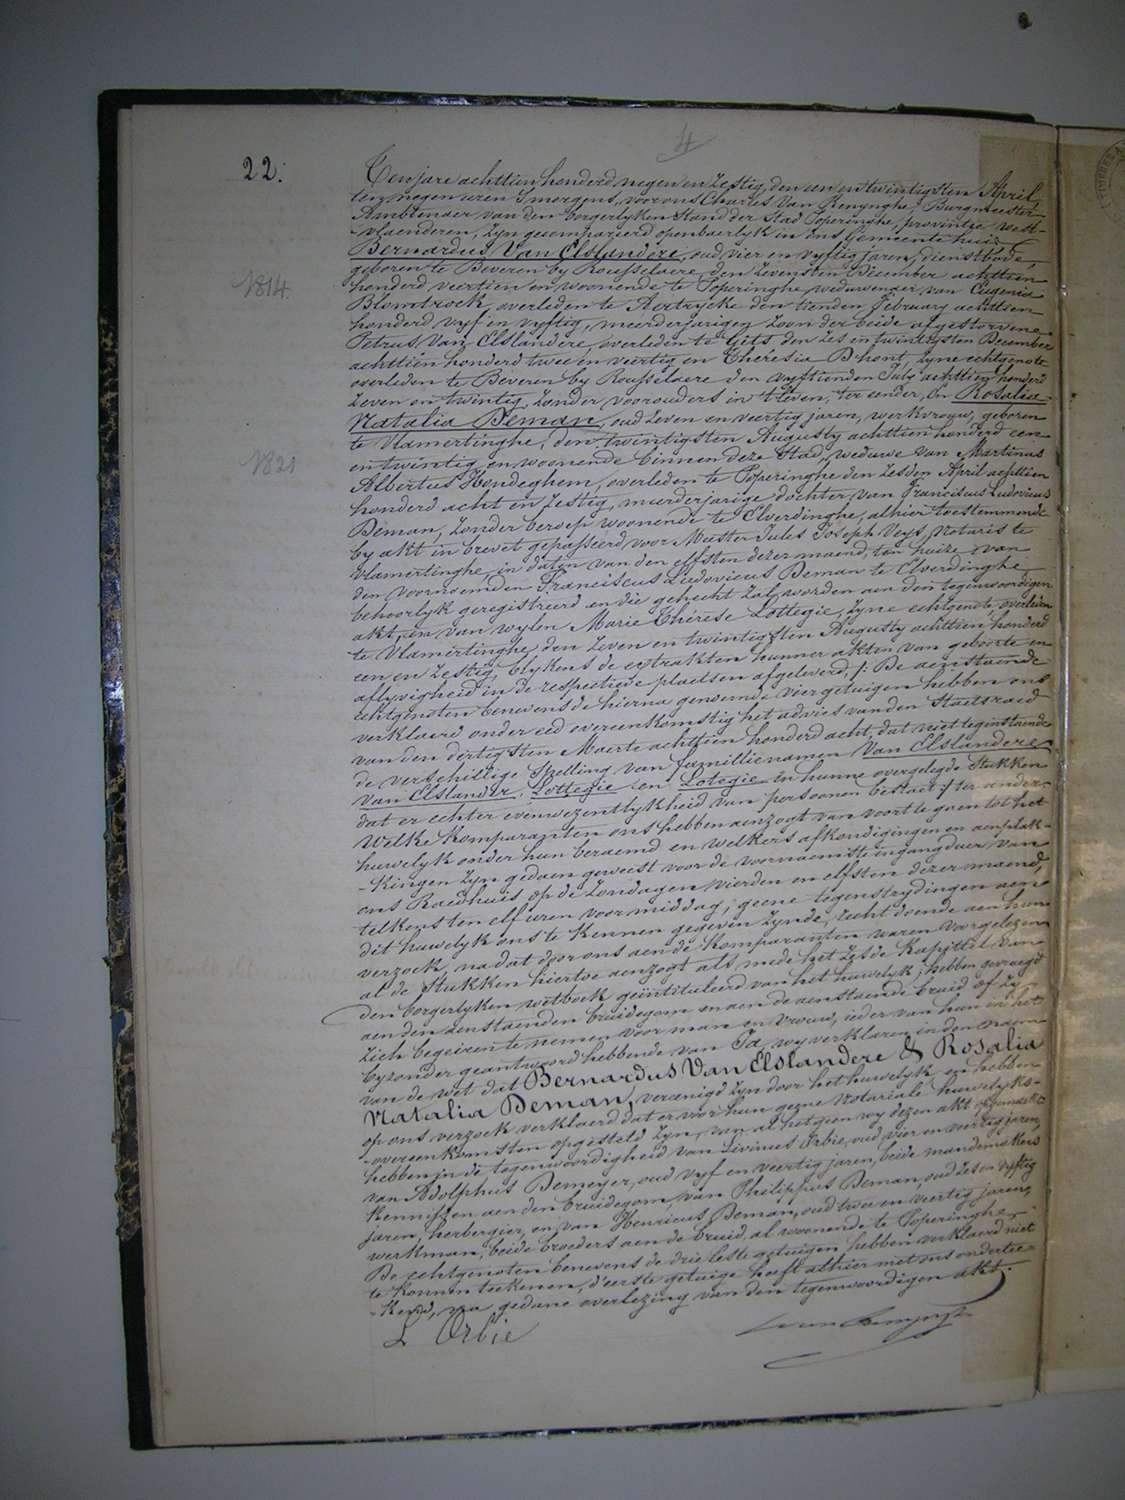 4
22.
Ten jare achttien honderd negen en zestig, den een en twintigsten April,
ten negen uren 's morgens, voor ons Charles Van Renynghe, Burgmeester,
Ambtenaer van den borgerlyken Stand der Stad Poperinghe, provintie West-
-vlaenderen, zyn gecompareerd openbaerlyk in ons Gemeente huis
Bernardus Van Elslandere, oud vier en vyftig jaren, dienstbode,
geboren te Beveren by Rousselaere, den zevensten December achttien
1814.
honderd veertien en woonende te Poperinghe, weduwenaer van Eugenia
Blomtrock, overleden te Aertrycke den tienden February achttien
honderd vyf en vyftig, meerderjarigen zoon der beide afgestorvene
Petrus Van Elslandere, overleden te Gits den zes en twintigsten December
achttien honderd twee en veertig en Theresia Dhont, zyne echtgenote
overleden te Beveren by Rousselaere den vyftienden July achttien honderd
zeven en twintig, zonder voorouders in 't leven; ter eender, En Rosalia
Natalia Deman, oud zeven en veertig jaren, werkvrouw, geboren
te Vlamertinghe, den twintigsten Augusty achttien honderd een
1821
en twintig en woonende binnen deze Stad, weduwe van Martinus
Albertus Hondeghem, overleden te Poperinghe den zesden April achttien
honderd acht en zestig, meerderjarige dochter van Franciscus Ludovicus
Deman, zonder beroep woonende te Elverdinghe, alhier toestemmende
by akt in brevet gepasseerd voor Meester Jules Joseph Veys, Notaris te
Vlamertinghe, in daten van den elfsten dezer maend, ten huize van
den voornoemden Franciscus Ludovicus Deman te Elverdinghe
behoorlyk geregistreerd en die gehecht zal worden aen den tegenwoordigen
akt, en van wylen Marie Thérèse Lottegie, zyne echtgenote, overleden
te Vlamertinghe den zeven en twintigsten Augusty achttien honderd
een en zestig, blykens de extrakten hunner akten van geboorte en
aflyvigheid in de respectieve plaetsen afgeleverd, /: De aenstaende
echtgenoten benevens de hierna genoemde vier getuigen hebben ons
verklaerd onder eed overeenkomstig het advies van den Staetsraed
van den dertigsten Maerte achttien honderd acht, dat niet teginstaende
de verschillige spelling van famillienamen Van Elslandere,
Van Elslander, Lottegie en Lotegie in hunne overgelegde Stukken
dat er echter evenwezentlykheid van persoonen bestaet :/ ter ander-
Welke komparanten ons hebben aenzogt van voort te gaen tot het
huwelyk onder hun beraemd en welkers afkondigingen en aenplak-
-kingen zyn gedaen geweest voor de voornaemste ingangdeur van
ons Raedhuis op de zondagen vierden en elfsten dezer maend,
telkens ten elf uren voormiddag; geene tegenstrydingen aen
dit huwelyk ons te kennen gegeven zynde, recht doende aen hun
verzoek, na dat door ons aen de komparanten waren voorgelezen
al de Stukken hiertoe aenzogt als mede het zesde Kapittel van
den borgerlyken wetboek geïntituleerd van het huwelyk; hebben gevraegd
aen den aenstaenden bruidegom en aen de aenstaende bruid of zy
zich begeiren te nemen voor man en vrouw, ieder van hun in het
byzonder geantwoord hebbende van Ja, wy verklaren in den naem
van de wet dat Bernardus Van Elslandere & Rosalia
Natalia Deman, vereenigd zyn door het huwelyk en hebben
op ons verzoek verklaerd dat er voor hun geene Notariale huwelyks-
-overeenkomsten opgesteld zyn, van al het geen wy dezen akt opgemaekt
hebben in de tegenwoordigheid van Livinus Orbie, oud vier en veertig jaren,
van Adolphus Demeyer, oud vyf en veertig jaren, beide mandemakers
kennissen aen den bruidegom, van Philippus Deman, oud zes en vyftig
jaren, herbergier, en van Henricus Deman, oud twee en veertig jaren,
werkman, beide broeders aen de bruid, al woonende te Poperinghe.
De echtgenoten benevens de drie leste getuigen hebben verklaerd niet
te konnen teekenen, d'eerste getuige heeft alhier met ons ondertee-
-kend, na gedane overlezing van den tegenwoordigen akt.
L Orbie